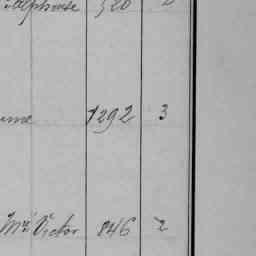 Alphonse 320 2
ume 1292 3
Mme Victor 846 2